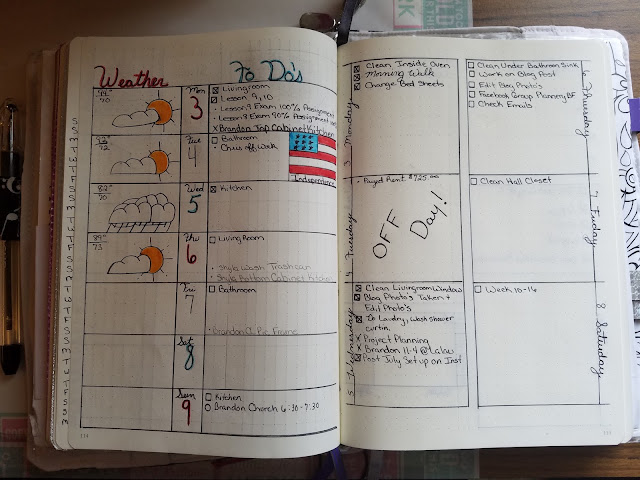 Weather
To Do's
70
Mon
3
Livingroom
Lesson 9, 10
Lesson 7 Exam 100% Assignment
Lesson 8 Exam 90% Assignment
Brandon Top Cabinet Kitchen
72
Tue
4
Bathroom
Chris off Work
Independence
82°
70
Wed
5
Kitchen
89°
73
Thu
6
Living Room
Style Wash Trashcan
Style Bottom Cabinet Kitchen
Fri
7
Bathroom
Brandon C. Pic Frame
Sat
8
Sun
9
Kitchen
Brandon Church 6:30-7:30
3 Monday
Clean Inside Oven
Morning Walk
Change Bed Sheets
4 Tuesday
Payed Rent $725.00
OFF Day!
5 Wednesday
Clean Livingroom Windows
Blog Photo's Taken +
Edit Photo's
Do Laundry, Wash shower
curtin.
Project Planning
Brandon 11-4 @
Post July Set up on Inst
6 Thursday
Clean Under Bathroom Sink
Work on Blog Post
Edit Blog Photo's
Facebook Group Planning BF
Check Emails
7 Friday
Clean Hall Closet
8 Saturday
Week 10-16